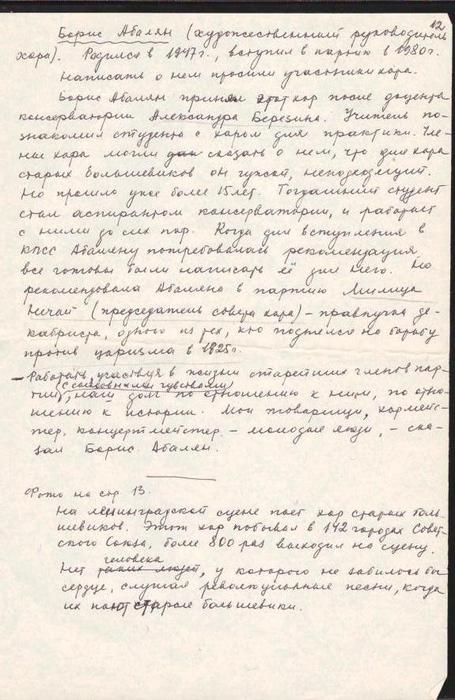 12
Борис Абалян (художественный руководитель
хора). Родился в 1947 г., вступил в партию в 1980 г.
Написать о нем просили участники хора.
Борис Абалян принял этот хор после доцента
консерватории Александра Березина. Учитель по-
знакомил студента с хором для практики. Чле-
ны хора могли сказать о нем, что для хора
старых большевиков он чужой, неподходящий.
Но прошло уже более 15 лет. Тогдашний студент
стал аспирантом консерватории, и работает
с ними до сих пор. Когда для вступления в
КПСС Абаляну потребовалась рекомендация,
все готовы были написать её для него. Но
рекомендовала Абаляна в партию Милица
Нечай (председатель совета хора) – правнучка де-
кабриста, одного из тех, кто поднялся на борьбу
против царизма в 1825 г.
– Работать, участвуя в жизни старейших членов пар-
(с сыновними чувствами)
тии, наш долг по отношению к ним, по отно-
шению к истории. Мои товарищи, хормейс-
тер, концертмейстер – молодые люди, – ска-
зал Борис Абалян.
Фото на стр. 13.
На ленинградской сцене поет хор старых боль-
шевиков. Этот хор побывал в 142 городах Совет-
ского Союза, более 800 раз выходил на сцену.
человека
Нет таких людей, у которого не забилось бы
сердце, слушая революционные песни, когда
их поют старые большевики.